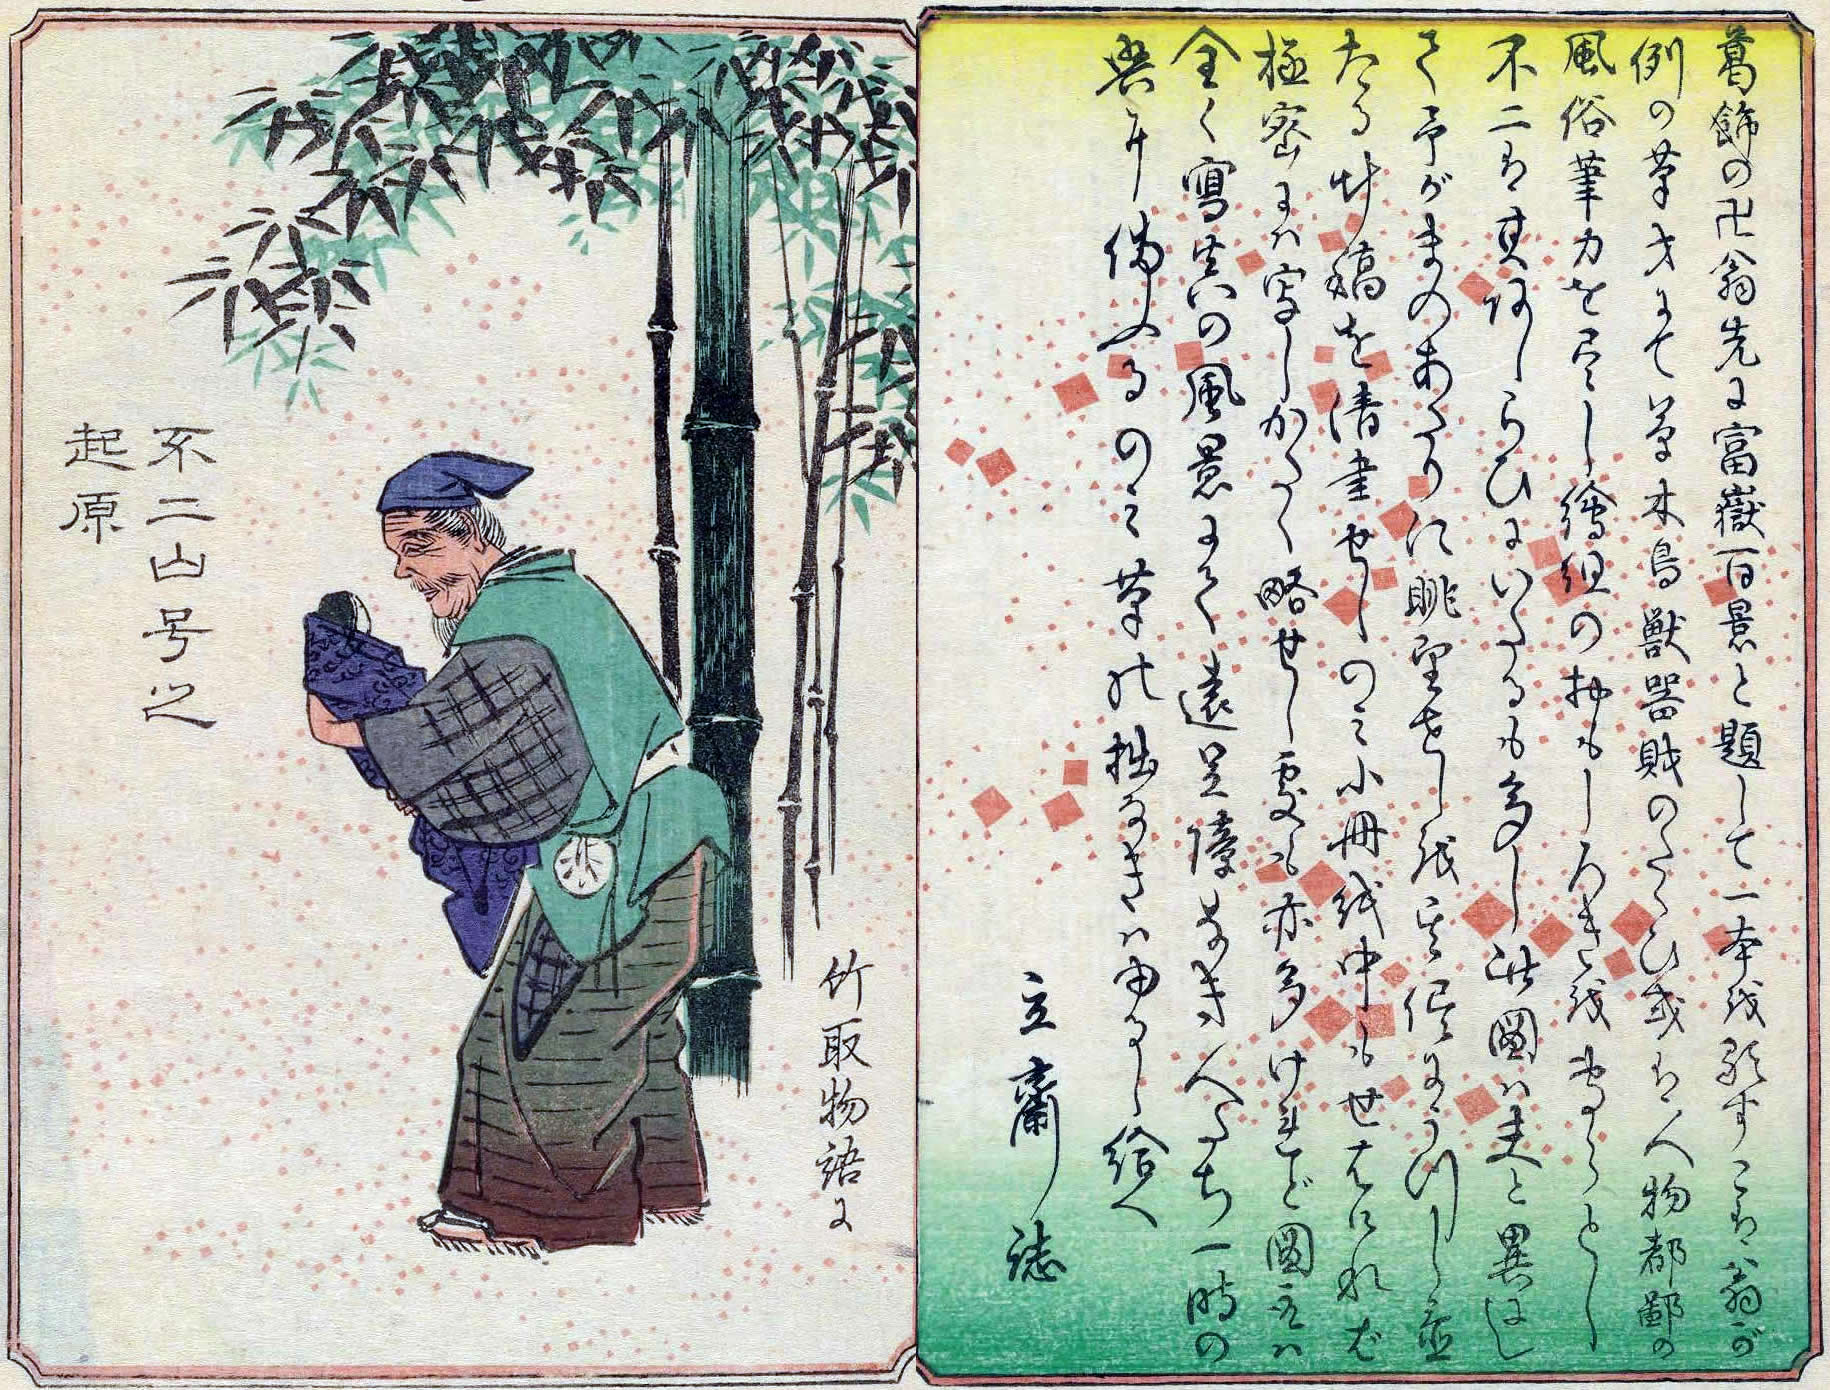 葛飾の卍翁先に富嶽百景と題して一本を顕すこは翁が
例の筆才にて草木鳥獣器財のたくひ或は人物都鄙の
風俗筆力を尽し絵組のおもしろきを専らとし
不二は其あしらひにいたるも多し此図は夫と異にし
て予がまのあたりに眺望せしを其侭にうつし置
たる草稿を清書せしのミ小冊の中もせはけれは
極密には写しかたく略せし処も亦多けれど図取ハ
全く写真の風景にして遠足障なき人たち一時の
興に備ふるのミ筆の拙なきはゆるし給へ
立齋誌
竹取物語に
不二山号之
起原